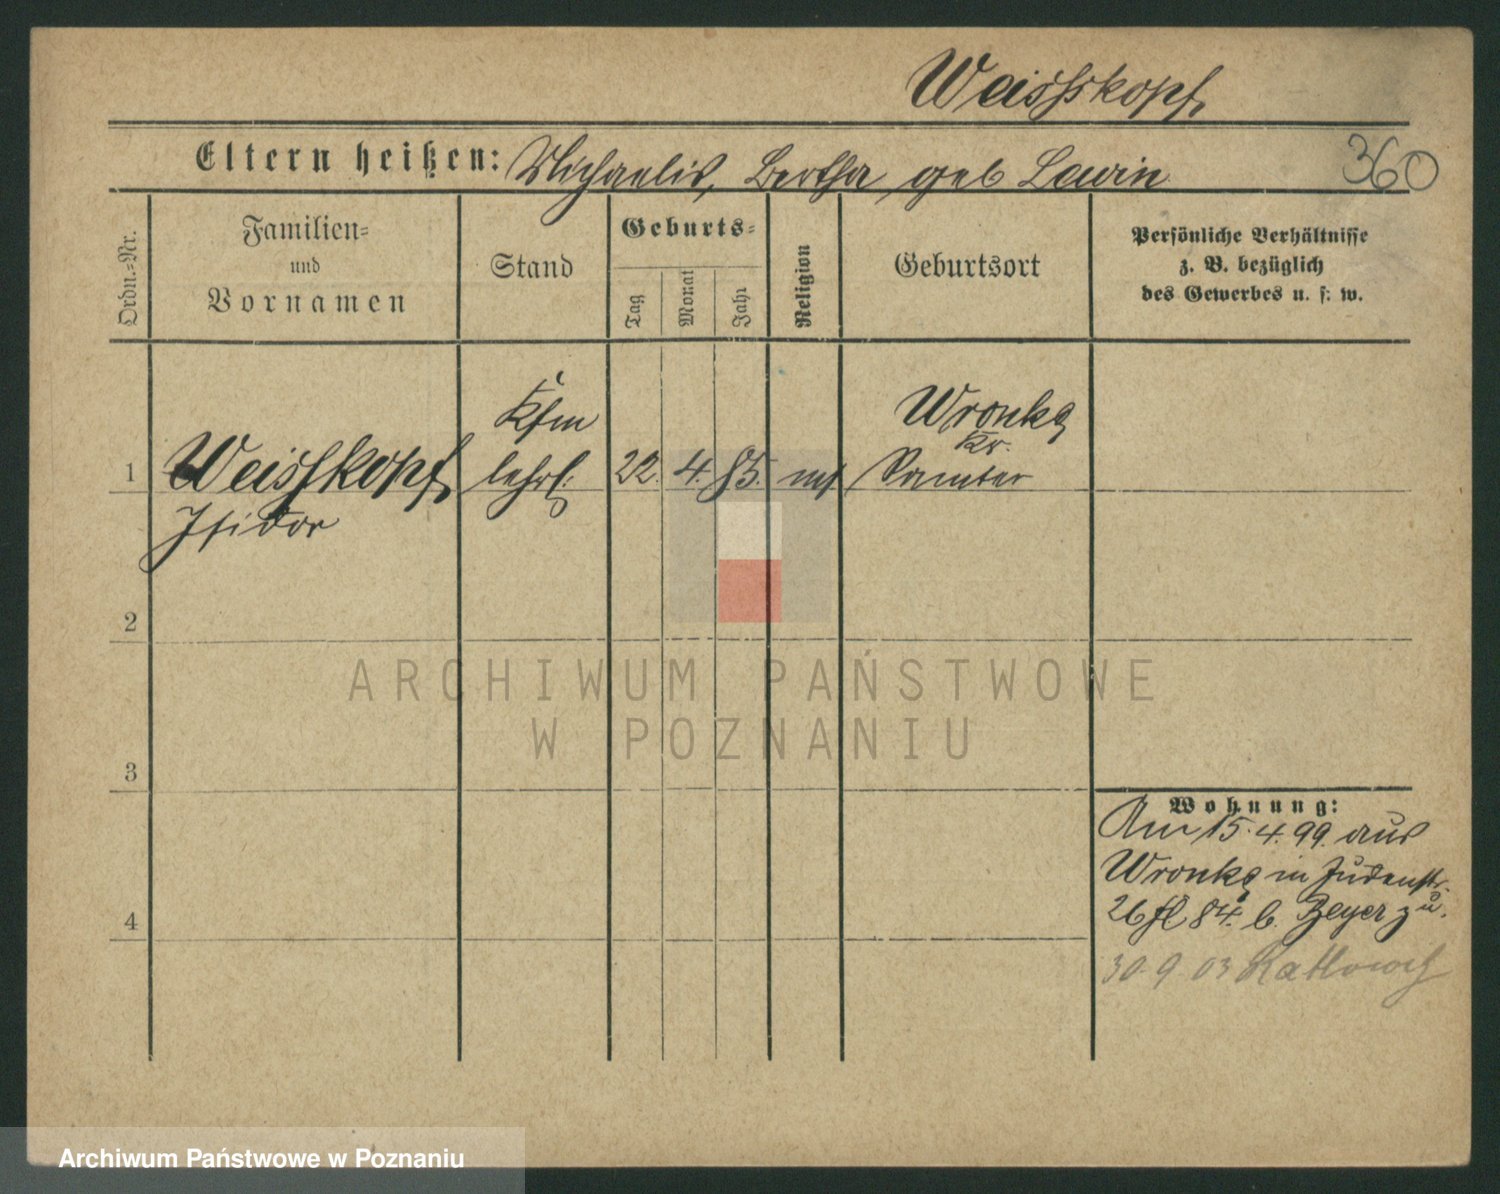 Weissskopf,
Eltern heißen: Michaelis, Bertha geb Lewin
360
Ordn.=Nr.
Familien=
und
Vornamen
Stand
Geburts=
Tag
Monat
Jahr
Religion
Geburtsort
Persönliche Verhältnisse
z. B. bezüglich
des Gewerbes u. s. w.
1
Weisskopf,
Isidor
Kfm
lehrl:
22. 4. 85.
mos
Wronke
Kr.
Samter
2
3
4
Wohnung:
Am 15.4.99. aus
Wronke in Judenstr.
26 b. Beyer zu.
30.9.03 Kattowitz
ARCHIWUM PAŃSTWOWE
W POZNANIU
Archiwum Państwowe w Poznaniu